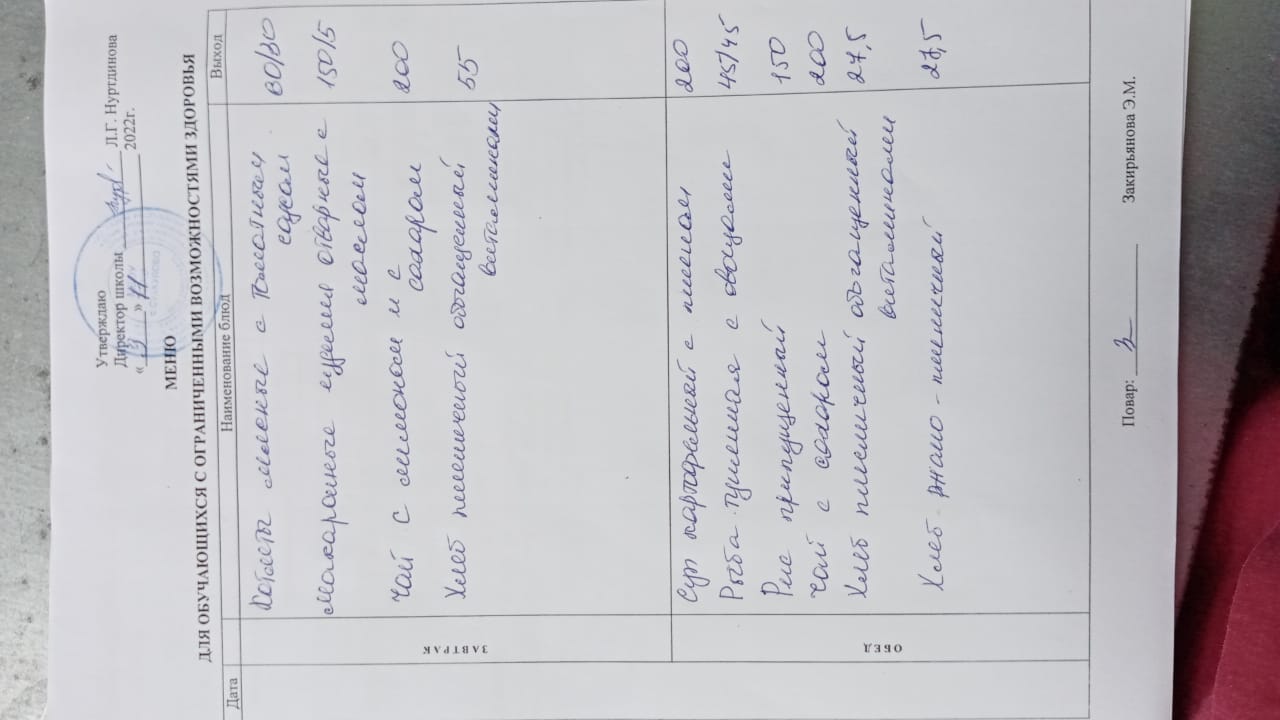 Утверждаю
Директор школы Л.Г. Нуртдинова
« 19 » 11 2022г.
МЕНЮ
ДЛЯ ОБУЧАЮЩИХСЯ С ОГРАНИЧЕННЫМИ ВОЗМОЖНОСТЯМИ ЗДОРОВЬЯ
Дата Наименование блюд Выход
ЗАВТРАК
Котлеты мясные с томатным 80/30
соусом
макаронные изделия отварные с 150/5
маслом
Чай с лимоном и с 200
сахаром
Хлеб пшеничный обогащенный 55
витаминами
ОБЕД
Суп картофельный с пшеном 200
Рыба тушенная с овощами 45/45
Рис припущенный 150
Чай с сахаром 200
Хлеб пшеничный обогащенный 27,5
витаминами
Хлеб ржано-пшеничный 27,5
Повар: Закирьянова Э.М.